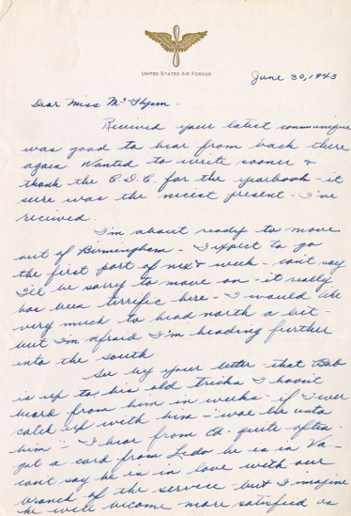 UNITED STATES AIR FORCES
June 30, 1943
Dear Miss
Received your latest communique
was good to hear from back there
again. Wanted to write sooner &
thank the C.D.C. for the yearbook - it
sure was the nicest present - I've
received.
I'm about ready to move
out of Birmingham - I expect to go
the first part of next week - can't say
I'll be sorry to move on - it really
has been terrific here - I would like
very much to head north a bit -
but I'm afraid I'm heading further
into the south
See by your letter - that Bob
is up to his old tricks I havent
heard from him in weeks - if I ever
catch up with him - "woe be unto
him" - I hear from Ed - quite often -
got a card from Ledo he is in Va -
cant say he is in love with our
branch of the service - but I imagine
he will become more satisfied as